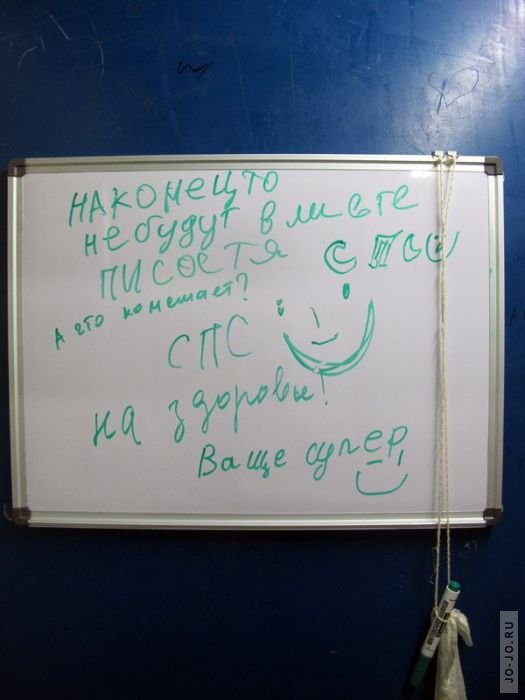 НАКОНЕЦТО
небудут в лифте
СПС
А что помешает?
СПС
на здоровье!
Ваще супер
JO-JO.RU